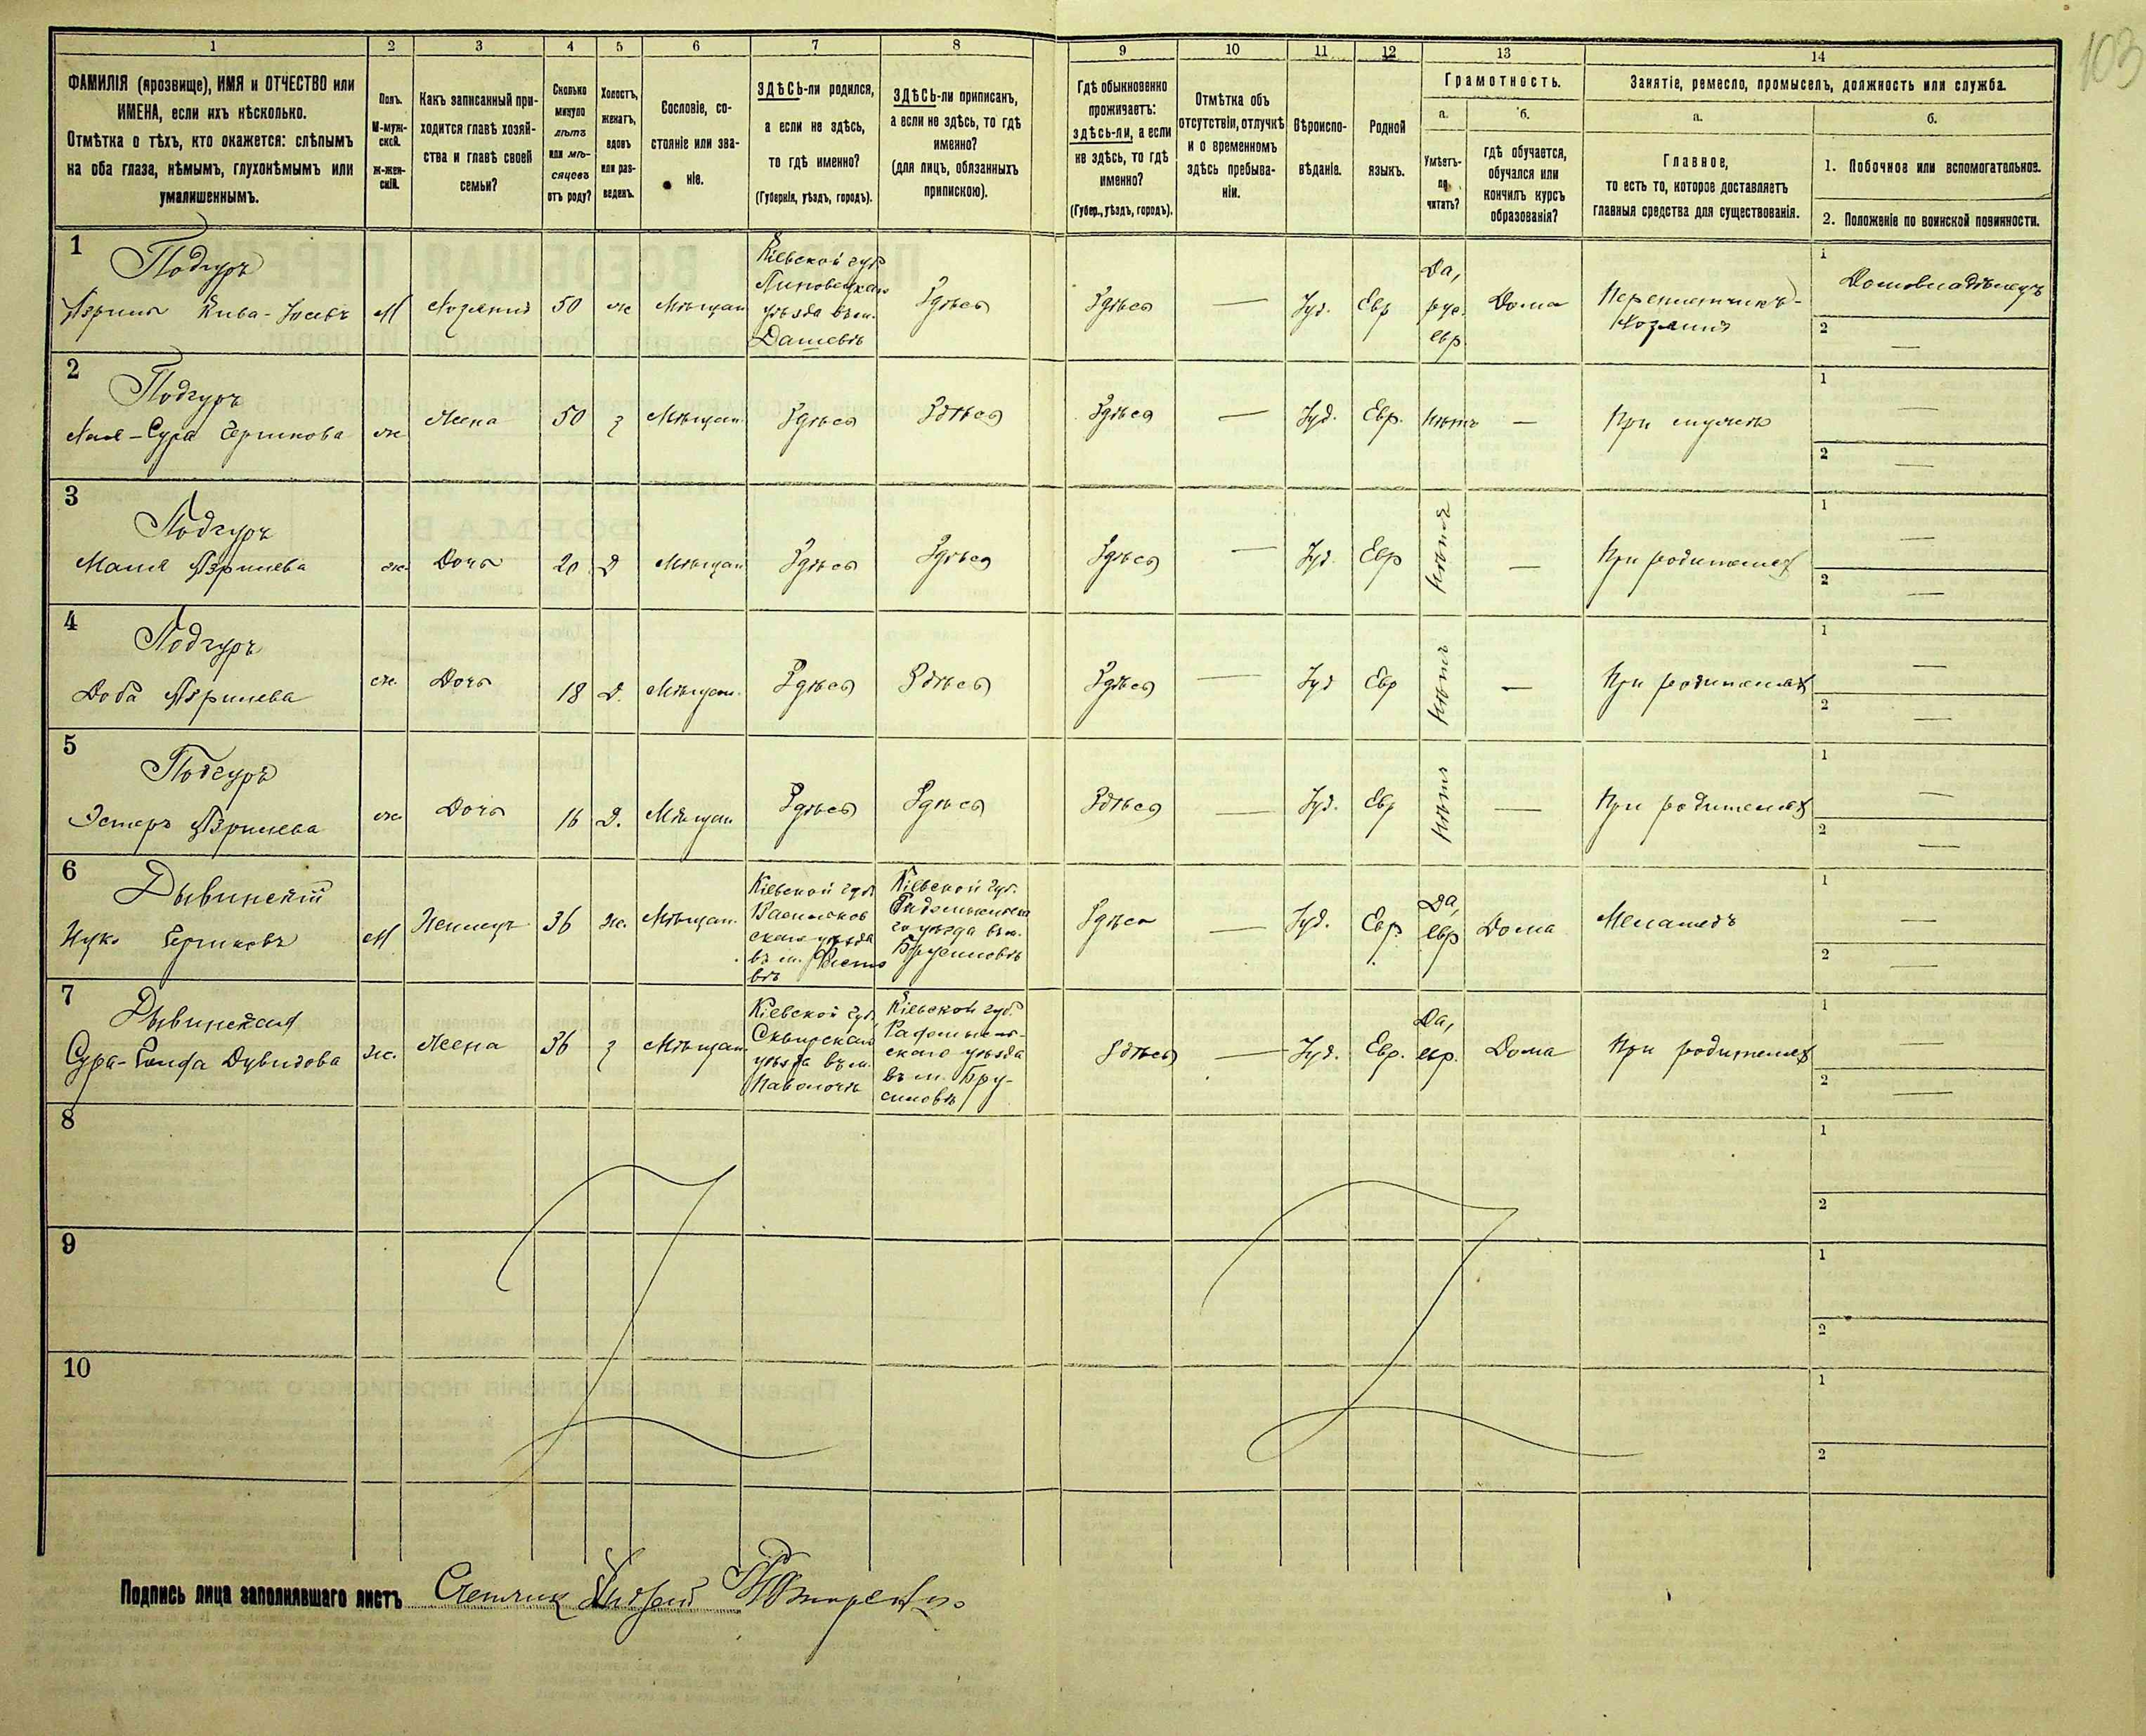 103
1 2 3 4 5 6 7 8 9 10 11 12 13 14
ФАМИЛІЯ (прозвище), ИМЯ и ОТЧЕСТВО или
ИМЕНА, если ихъ нѣсколько.
Отмѣтка о тѣхъ, кто окажется: слѣпымъ
на оба глаза, нѣмымъ, глухонѣмымъ или
умалишеннымъ.
Полъ.
М-муж-
ской.
Ж-жен-
скій.
Какъ записанный при-
ходится главѣ хозяй-
ства и главѣ своей
семьи?
Сколько
минуло
лѣтъ
или мѣ-
сяцевъ
отъ роду?
Холостъ,
женатъ,
вдовъ
или раз-
веденъ.
Сословіе, со-
стояніе или зва-
ніе.
ЗДѢСЬ-ли родился,
а если не здѣсь,
то гдѣ именно?
(Губернія, уѣздъ, городъ).
ЗДѢСЬ-ли приписанъ,
а если не здѣсь, то гдѣ
именно?
(для лицъ, обязанныхъ
припискою).
Гдѣ обыкновенно
проживаетъ:
здѣсь-ли, а если
не здѣсь, то гдѣ
именно?
(Губер., уѣздъ, городъ).
Отмѣтка объ
отсутствіи, отлучкѣ
и о временномъ
здѣсь пребыва-
ніи.
Вѣроиспо-
вѣданіе.
Родной
языкъ.
Грамотность.
а.
Умѣетъ-
ли
читать?
б.
гдѣ обучается,
обучался или
кончилъ курсъ
образованія?
Занятіе, ремесло, промыселъ, должность или служба.
а.
Главное,
то есть то, которое доставляетъ
главныя средства для существованія.
б.
1. Побочное или вспомогательное.
2. Положеніе по воинской повинности.
1
Подгуръ
Кива-Іосевъ
М
Хозяинъ
50
ж
Мѣщан
Кіевской губ
Липовецкаго
уѣзда въ м.
Дашевѣ
Здѣсь
Здѣсь
—
Іуд.
Евр
Да,
рус.
евр.
Дома
Переплетчикъ-
хозяинъ
1
Домовладѣлецъ
2
—
2
Подгуръ
Сура Гершкова
ж
Жена
50
з
Мѣщан
Здѣсь
Здѣсь
Здѣсь
—
Іуд.
Евр.
Нѣтъ
—
При мужѣ
1
—
2
—
3
Подгуръ
Маля
ж
Дочь
20
Д
Мѣщан
Здѣсь
Здѣсь
Здѣсь
—
Іуд.
Евр
Нѣтъ
—
При родителях
1
—
2
—
4
Подгуръ
Доба
ж.
Дочь
18
Д.
Мѣщан.
Здѣсь
Здѣсь
Здѣсь
—
Іуд
Евр
Нѣтъ
—
При родителях
1
—
2
—
5
Подгуръ
Эстеръ
ж
Дочь
16
Д.
Мѣщан
Здѣсь
Здѣсь
Здѣсь
—
Іуд.
Евр
Нѣтъ
—
При родителях
1
—
2
—
6
Дывинскій
Гершковъ
М
36
ж.
Мѣщан.
Кіевской губ
Васильков
скаго уѣзда
въ м. Фасто
вѣ
Кіевской губ.
Радомысльска
го уѣзда въ м.
Брусиловѣ
Здѣсь
—
Іуд.
Евр.
Да,
евр
Дома
Меламедъ
1
—
2
—
7
Дывинская
Сура- Дувидова
ж.
Жена
36
з
Мѣщан.
Кіевской губ.
Сквирскаго
уѣзда въ м.
Паволочѣ
Кіевской губ.
Радомысль-
скаго уѣзда
въ м. Бру-
силовѣ
Здѣсь
—
Іуд.
Евр.
Да,
евр.
Дома
При родителях
1
—
2
—
8
1
2
9
1
2
10
1
2
Подпись лица заполнявшаго листъ Счетчик Андрей